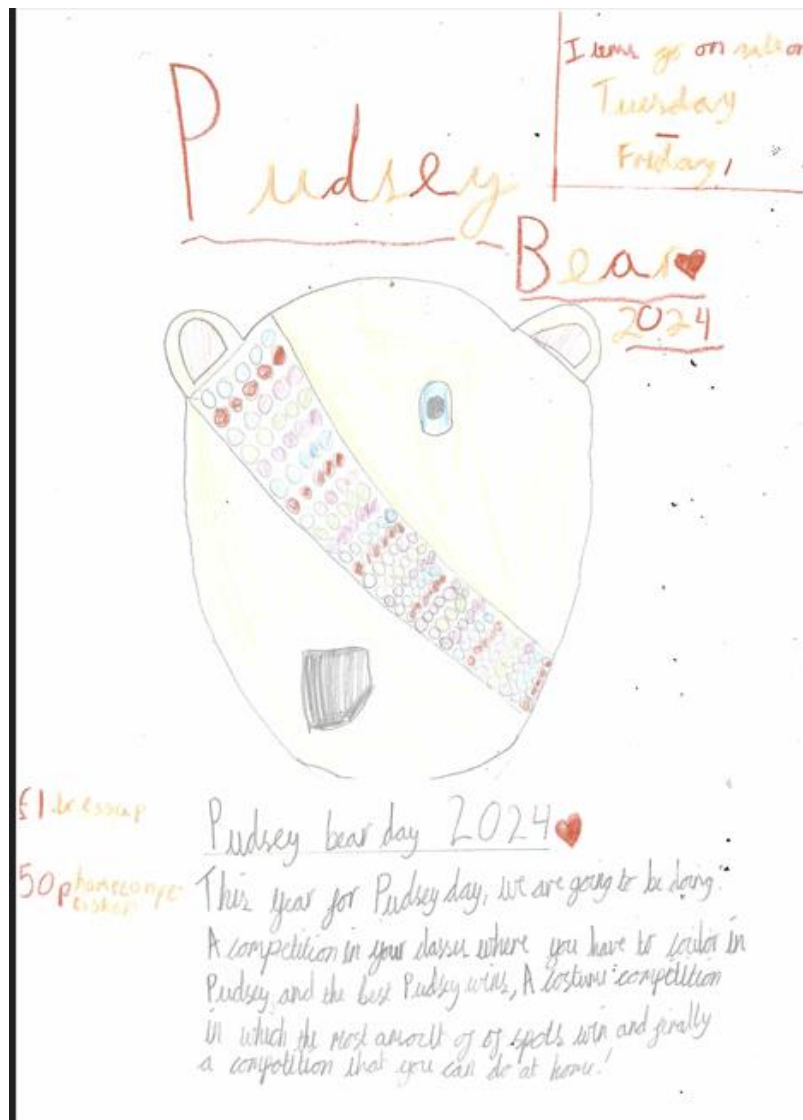 Pudsey
Items go on sale on
Tuesday
-
Friday,
Bear
2024
£1 Dressup
50p homecompe
tition
Pudsey bear day 2024
This year for Pudsey day, we are going to be doing:
A competition in your classes where you have to coulor in
Pudsey and the best Pudsey wins, A costume competition
in which the most amount of of spots win and finally
a competition that you can do at home!